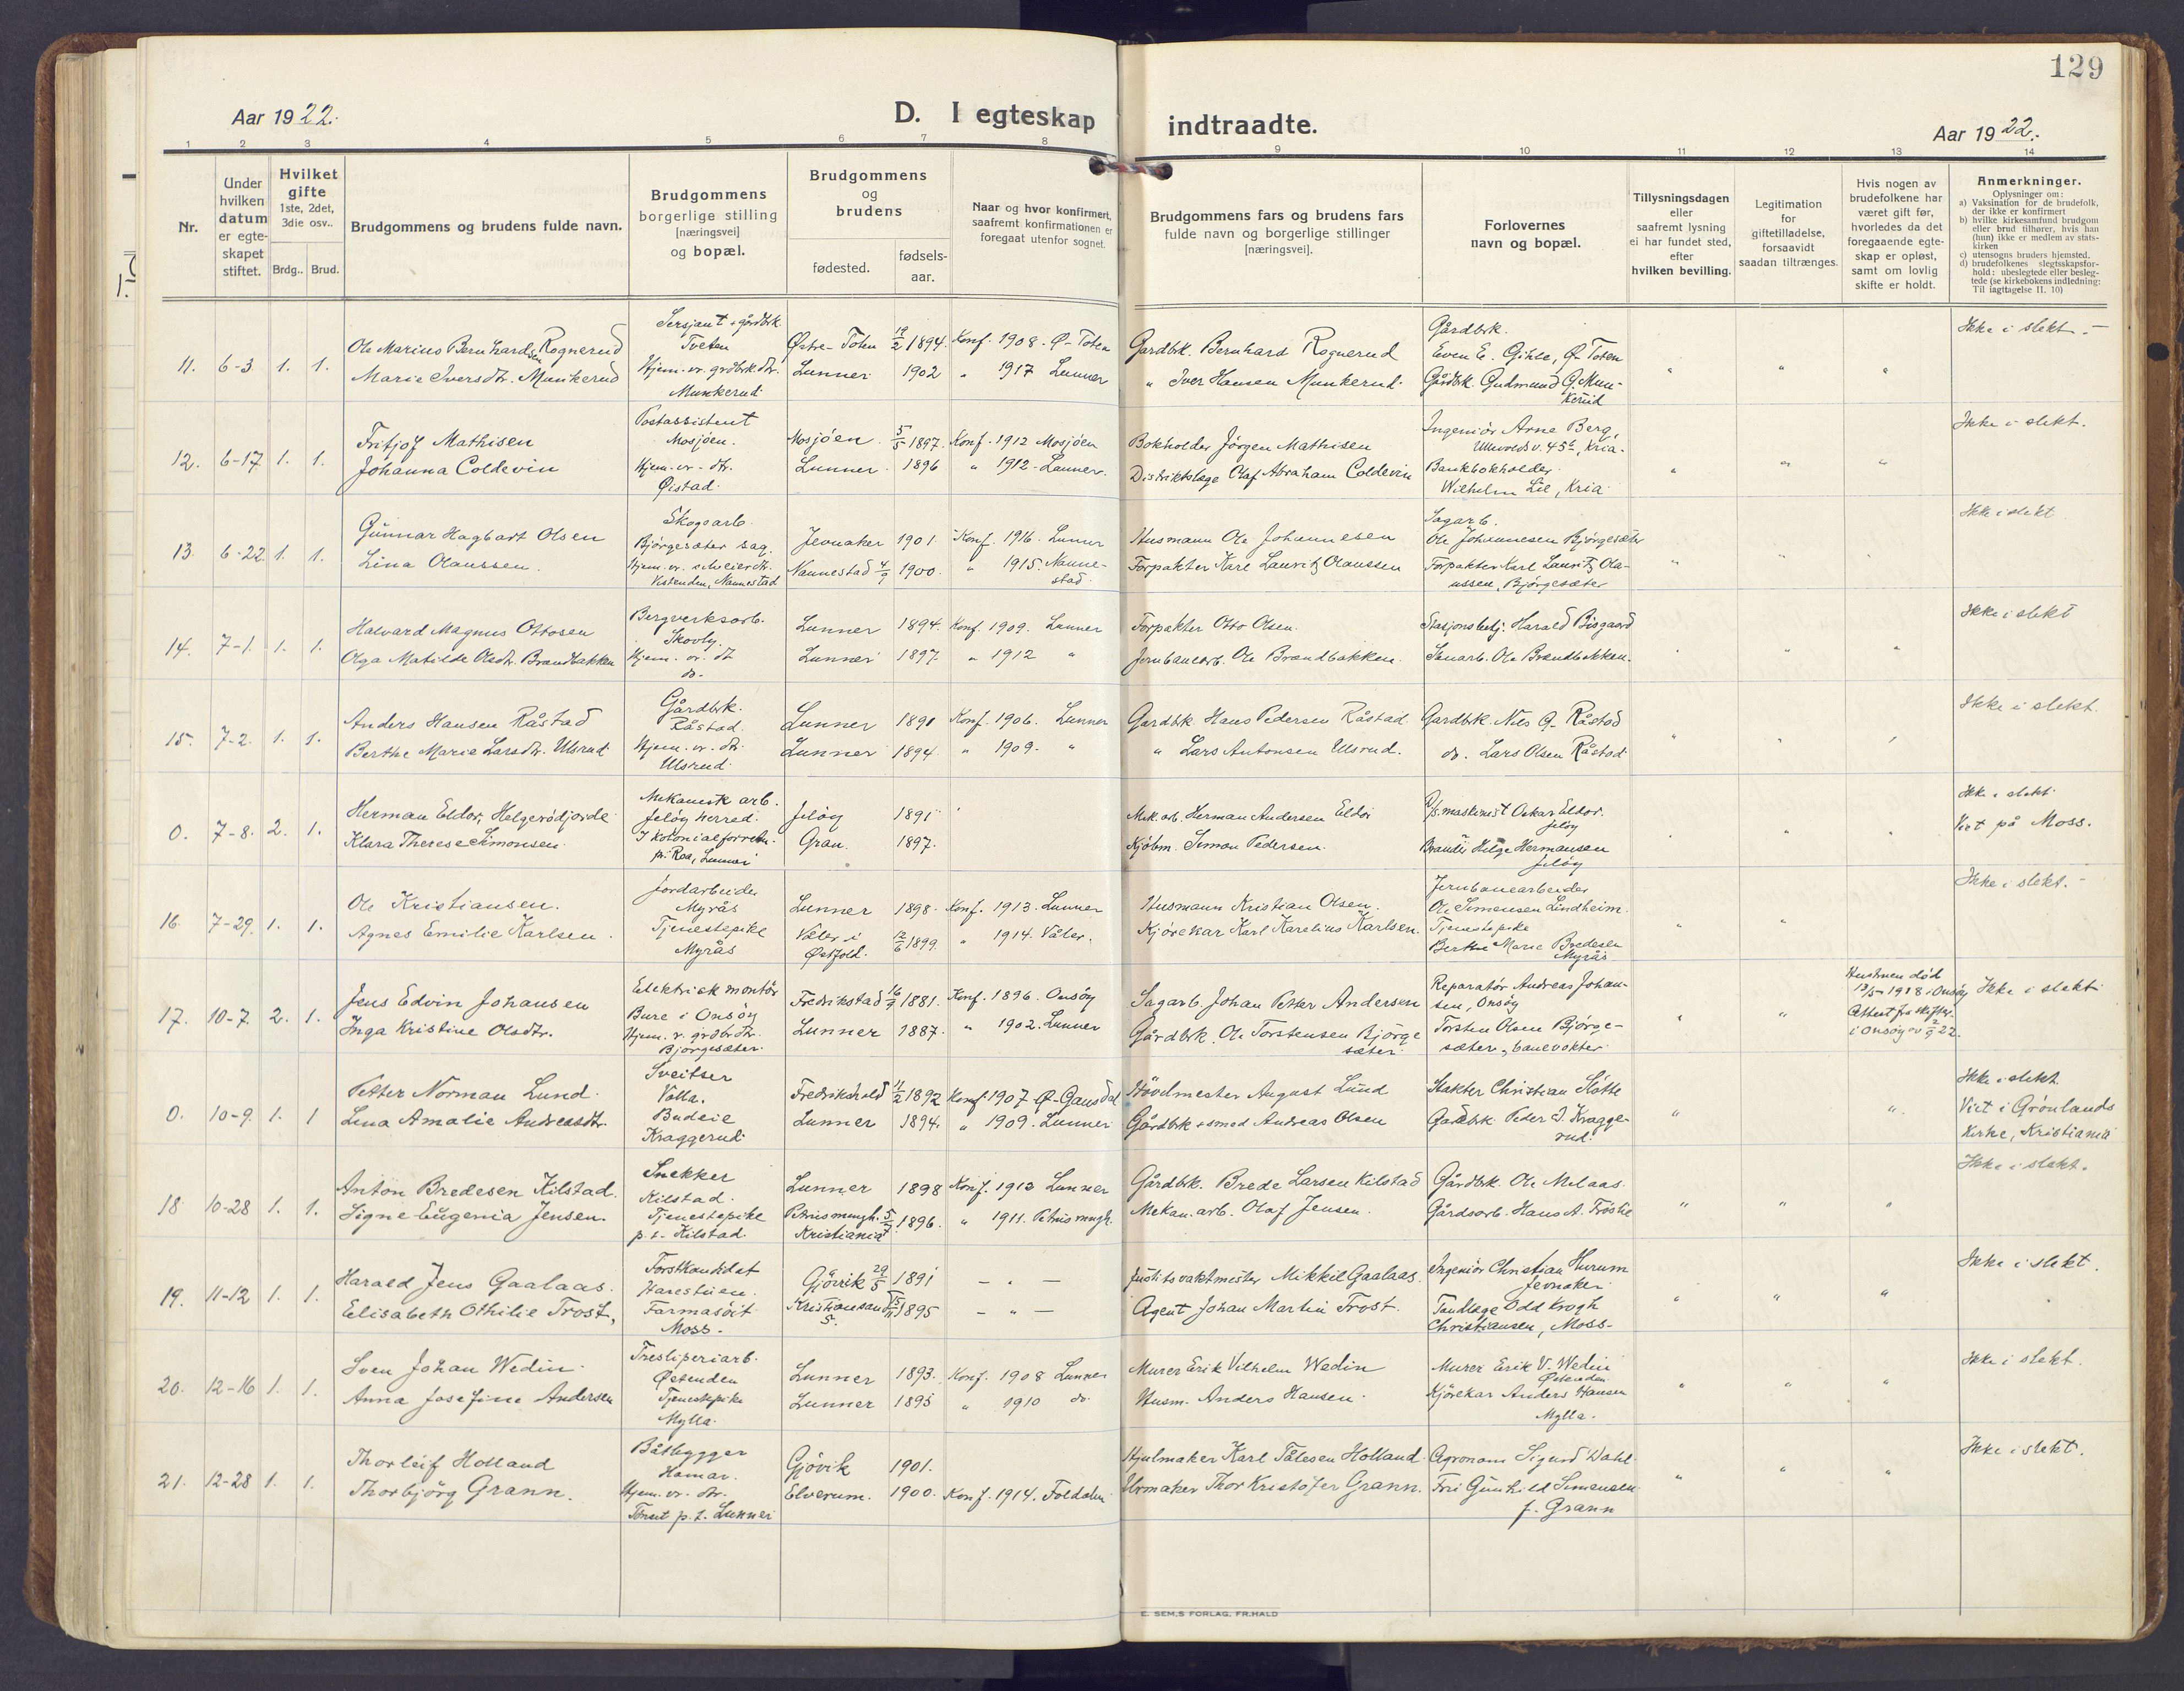 129
Aar 1922.
D. I egteskap indtraadte.
Aar 1922.
1 2 3 4 5 6 7 8 9 10 11 12 13 14
Nr.
Under hvilken datum er egte-skapet stiftet.
Hvilket gifte 1ste, 2det, 3die osv..
Brdg.. Brud.
Brudgommens og brudens fulde navn.
Brudgommens borgerlige stilling [næringsvei] og bopæl.
Brudgommens og brudens
fødested.
fødsels-aar.
Naar og hvor konfirmert, saafremt konfirmationen er foregaat utenfor sognet.
Brudgommens fars og brudens fars fulde navn og borgerlige stillinger [næringsvei].
Forlovernes navn og bopæl.
Tillysningsdagen eller saafremt lysning ei har fundet sted, efter hvilken bevilling.
Legitimation for giftetilladelse, forsaavidt saadan tiltrænges.
Hvis nogen av brudefolkene har været gift før, hvorledes da det foregaaende egte-skap er opløst, samt om lovlig skifte er holdt.
Anmerkninger.
Oplysninger om:
a) Vaksination for de brudefolk, der ikke er konfirmert
b) hvilke kirkesamfund brudgom eller brud tilhører, hvis han (hun) ikke er medlem av stats-kirken
c) utensogns bruders hjemsted.
d) brudefolkenes slegtsskapsfor-hold: ubeslegtede eller besleg-tede (se kirkebokens indledning: Til iagttagelse II. 10)
11. 6-3. 1. 1.
Ole Marius Bernhardsen Rognerud
Marie Iversdtr. Munkerud
Sersjant + gårdbrk.
Tveten
Hjem. vr. grdbrk.dtr.
Munkerud.
Østre-Toten 19/2 1894. Konf. 1908. Ø-Toten
Lunner 1902 " 1917 Lunner
Gardbrk. Bernhard Rognerud
" Iver Hansen Munkerud.
Gårdbrk.
Even E. Gihle, Ø-Toten
Gårdbrk. Gudmund G. Mun-
kerud
" " "
Ikke i slekt.
12. 6-17. 1. 1.
Fritjof Mathisen
Johanna Coldevin
Postassistent
Mosjöen.
Hjem. vr. - dtr.
Øistad.
Mosjöen. 5/5 1897. Konf. 1912 Mosjöen
Lunner. 1896 " 1912 - Lunner.
Bokholder Jörgen Mathisen
Distriktslæge Olaf Abraham Coldevin
Ingeniör Arne Berg,
Ullevoldsv. 45 , Kria.
Bankbokholder
Wilhelm Lie, Kria.
" " "
Ikke i slekt.
13. 6-22 1. 1.
Gunnar Hagbart Olsen
Lina Olaussen.
Skogsarb.
Björgesæter sag.
Hjem. vr. sveierdtr.
Vistenden, Nannestad
Jevnaker 1901. Konf. 1916. Lunner
Nannestad 4/9 1900. " 1915. Nanne-
stad.
Husmann Ole Johannesen
Forpakter Karl Lauritz Olaussen
Sagarb.
Ole Johannesen Björgesæter
Forpakter Karl Lauritz Ola-
ussen, Björgesæter
Ikke i slekt
14. 7-1. 1. 1.
Halvard Magnus Ottosen
Olga Matilde Olsdtr. Brandbakken
Bergverksarb.
Skovly.
Hjem. vr. dt
do.
Lunner 1894. Konf. 1909. Lunner
Lunner 1897. " 1912 "
Forpakter Otto Olsen.
Jernbanearb. Ole Brandbakken.
Stasjonsbetj. Harald Bisgaard
Ole Brandbakken.
Ikke i slekt
15. 7-2. 1. 1.
Anders Hansen Råstad
Berthe Marie Larsdtr. Ulsrud
Gårdbrk.
Råstad.
Hjem. vr. dtr.
Ulsrud.
Lunner 1891 Konf. 1906. Lunner
Lunner 1894. " 1909. "
Gardbrk Hans Pedersen Råstad.
" Lars Antonsen Ulsrud.
Gardbrk. Nils G. Råstad
do. Lars Olsen Råstad
Ikke i slekt.
0. 7-8. 2. 1.
Herman Eldor, Helgerödjorde
Klara Therese Simonsen
Mekanisk arb.
Jelöy herred.
I kolonialforretn.
pr. Roa, Lunner
Jelöy 1891
Gran. 1897.
Mek. arb. Herman Andersen Eldor
Kjöbm. Simon Pedersen.
maskinist Oskar Eldor.
Jelöy
Helge Hermansen
Jelöy
Ikke i slekt.
Viet på Moss.
16. 7-29. 1. 1.
Ole Kristiansen.
Agnes Emilie Karlsen.
Jordarbeider
Myrås
Tjenestepike
Myrås
Lunner 1898. Konf. 1913. Lunner
Våler i 12/6 1899. " 1914. Våler.
Østfold.
Husmann Kristian Olsen.
Kjörekar Karl Karelius Karlsen.
Jernbanearbeider
Ole Simensen Lindheim.
Tjenestepike
Berthe Marie Bredesen
Myrås
Ikke i slekt.
17. 10-7. 2. 1.
Jens Edvin Johansen
Inga Kristine Olsdtr.
Elektrisk montör
Bure i Onsöy
Hjem. v. grdbr.dtr.
Björgesæter.
Fredrikstad 16/7 1881. Konf. 1896. Onsöy
Lunner 1887. " 1902. Lunner
Sagarb. Johan Petter Andersen
Gårdbrk. Ole Torstensen Björge
sæter.
Reparatør Andreas Johan-
sen, Onsöy
Torsten Olsen Björge-
sæter, banevokter
Hustruen död
13/5 1918 i Onsöy
Attest fra skifter.
i Onsöy av 2/9 22.
Ikke i slekt
0. 10-9. 1. 1
Petter Norman Lund.
Lina Amalie Andreasdtr.
Sveitser
Volla.
Budeie
Kraggerud.
Fredrikshald 11/2 1892 Konf 1907 Ø-Gausdal
Lunner 1894. " 1909. Lunner
Hövelmester August Lund
Gårdbrk + smed Andreas Olsen
Christian Slåtte
Gardbrk. Peder I. Kragge-
rud.
Ikke i slekt.
Viet i Grönlands
kirke, Kristiania
18. 10-28 1. 1.
Anton Bredesen Kilstad.
Signe Eugenia Jensen.
Snekker
Kilstad.
Tjenestepike
p.t. Kilstad.
Lunner 1898 Konf. 1913 Lunner
Petrus mngh. 5/7 1896. " 1911. Petrus mngh.
Kristiania
Gårdbrk. Brede Larsen Kilstad
Mekan. arb. Olaf Jensen.
Gårdbrk. Ole Melaas.
Gårdsarb. Hans A. Fröslie
Ikke i slekt.
19. 11-12 1. 1.
Harald Jens Gaalaas.
Elisabeth Othilie Trost,
Forstkandidat
Harestuen.
Farmasöit
Moss.
Gjövik 29/5 1891 - " -
Kristiansand S. 1895 - " -
Justitsvaktmester Mikkel Gaalaas.
Agent Johan Martin Trost.
Ingeniör Christian Hurum
Jevnaker
Tandlege Odd Krogh
Christiansen, Moss.
" " "
Ikke i slekt.
20. 12-16 1. 1.
Sven Johan Wedin.
Anna Josefine Andersen
Tresliperiarb.
Østenden
Tjenestepike
Mylla.
Lunner 1893. Konf. 1908 Lunner
Lunner 1895 " 1910 do.
Murer Erik Vilhelm Wedin
Husm. Anders Hansen.
Murer Erik V. Wedin
Østenden
Kjörekar Anders Hansen
Mylla.
" " "
Ikke i slekt.
21. 12-28 1. 1.
Thorleif Holland
Thorbjörg Grann.
Båtbygger
Hamar.
Hjem. vr. dtr.
Tönset p.t. Lunner
Gjövik 1901.
Elverum. 1900. Konf. 1914. Foldalen
Hjulmaker Karl Tålesen Holland.
Urmaker Thor Kristofer Grann.
Agronom Sigurd Dahl.
Fru Gunhild Simensen
f. Grann
" " "
Ikke i slekt.
E. SEM,S FORLAG, FR.HALD